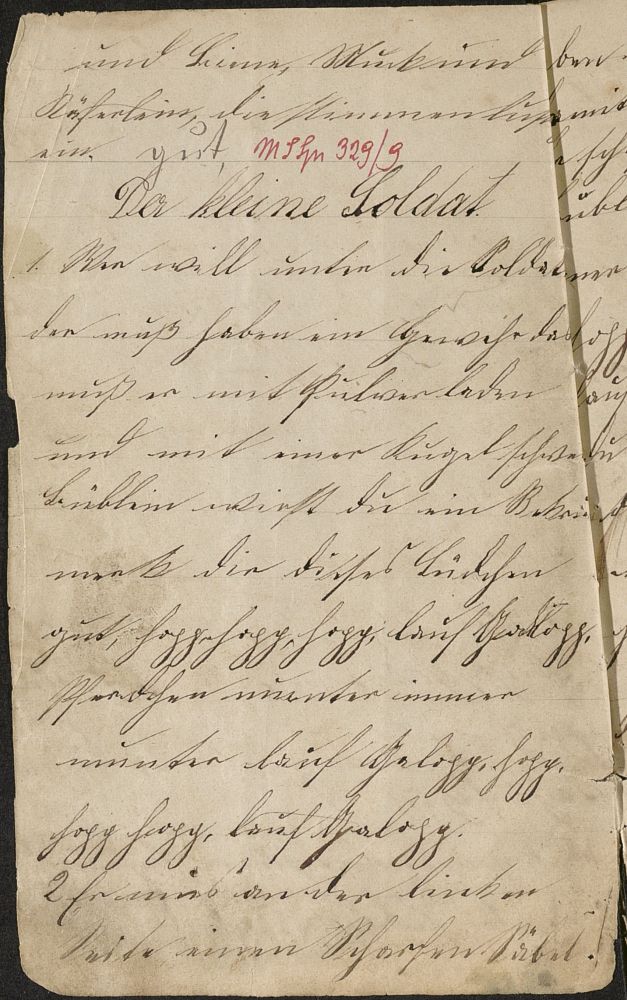 und Biene, Muck und
Käferlein, die stimmen lustig mit
ein. gut, MSHn 329/9
Der kleine Soldat.
1. Wer will unter die Soldaten
der muß haben ein Gewehr das
muß er mit Pulver laden
und mit einer Kugel schwer
Büblein wirst du ein Rekrut
merk dir dieses Liedchen
gut, hopp hopp, hopp, lauf Galopp,
Pferdchen munter immer
munter lauf Galopp, hopp,
hopp hopp, lauf Galopp.
2 Er mus an der linken
Seite einen Scharfen Säbel